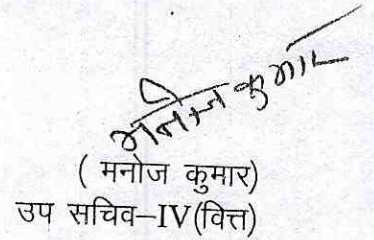 मनोज कुमार
( मनोज कुमार)
उप सचिव–IV(वित्त)